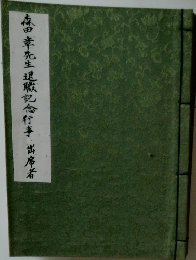 森田幸先生退職記念行事 出席者